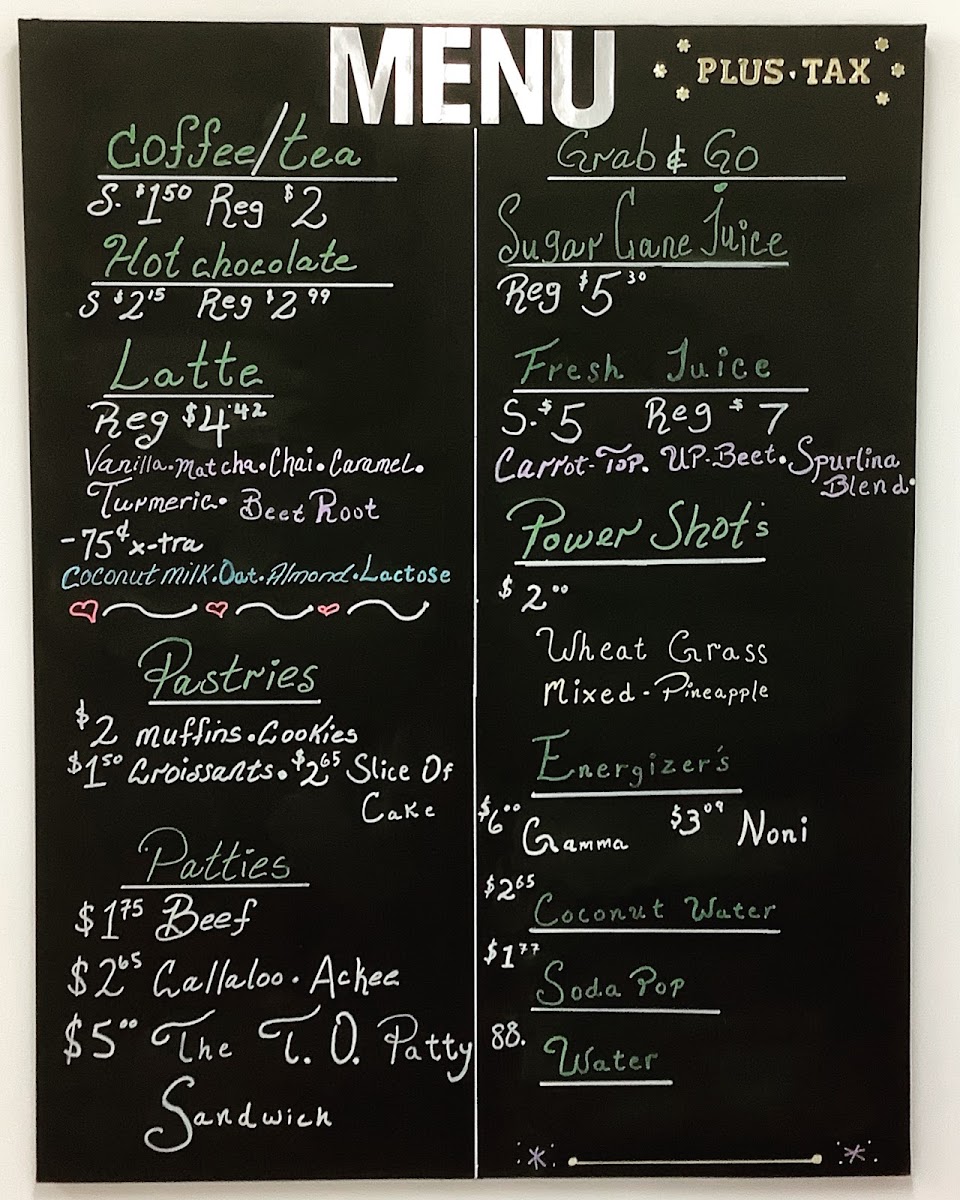 MENU
PLUS·TAX
Coffee/tea
S. $1.50 Reg $2
Hot chocolate
S $2.15 Reg $2.99
Latte
Reg $4.42
Vanilla·Matcha·Chai·Caramel·
Turmeric· Beet Root
-75¢ x-tra
Coconut milk·Oat·Almond·Lactose
Pastries
$2 muffins·Cookies
$1.50 Croissants·$2.65 Slice Of
Cake
Patties
$1.75 Beef
$2.65 Callaloo·Ackee
$5.00 The T.O. Patty
Sandwich
Grab & Go
Sugar Cane Juice
Reg $5.30
Fresh Juice
S.$5 Reg $7
Carrot-Top. UP-Beet·Spurlina
Blend·
Power Shot's
$2.00
Wheat Grass
Mixed-Pineapple
Energizer's
$6.00 Gamma $3.09 Noni
$2.65
Coconut Water
$1.77
Soda Pop
88.
Water